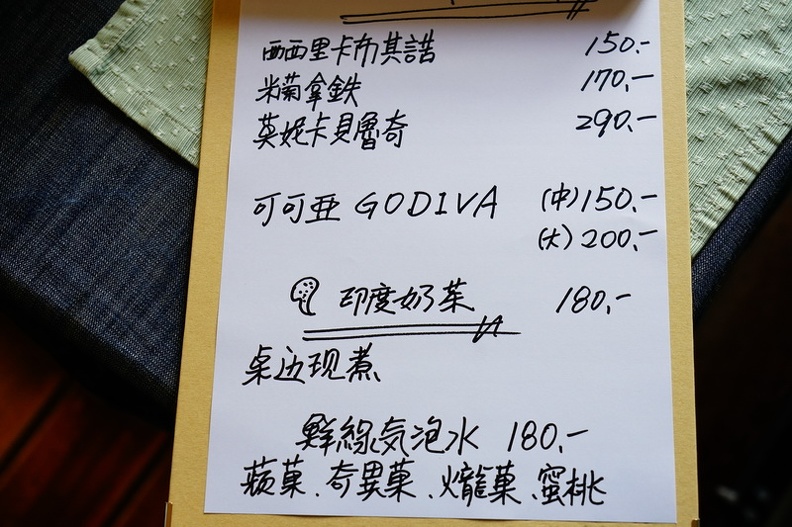 西西里卡布其諾 150.-
米菊拿鐵 170.-
莫妮卡貝魯奇 290.-
可可亜 GODIVA (中)150.-
(大)200.-
印度奶茶 180.-
桌边现煮
鮮綠气泡水 180.-
蘋菓、奇異菓、火龍菓、蜜桃